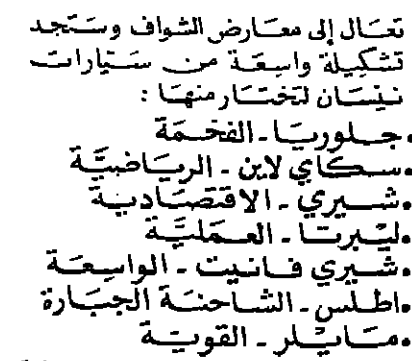 تعال إلى معارض الشواف وستجد
تشكيلة واسعة من سيارات
نيسان لتختار منها :
• جلوريا - الفخمة
• سكاي لاين - الرياضيّة
• شيري - الاقتصادية
• ليبرتا - العمليّة
• شيري فانيت - الواسعة
• اطلس - الشاحنة الجبارة
• مايلر - القوية